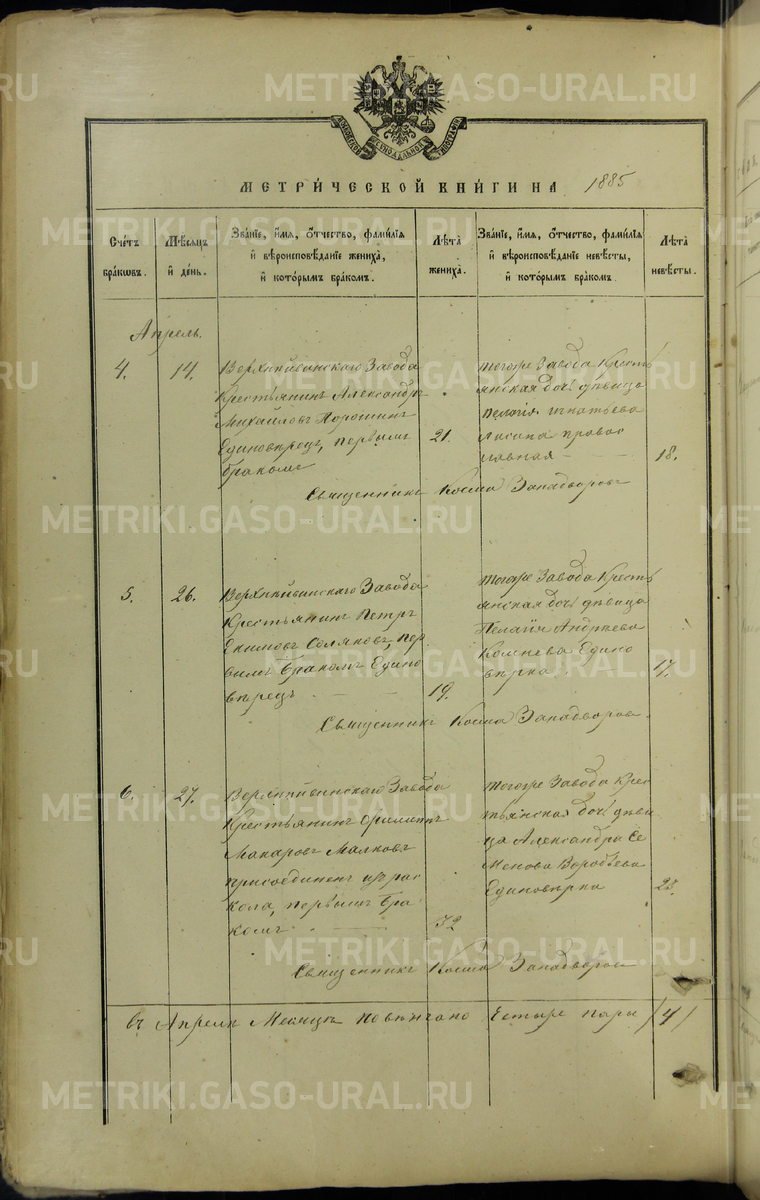 METRIKI.GASO-URAL.RU
МЕТРИ́ЧЕСКОЙ КНИ́ГИ НА 1885
Сче́тъ бра́кωвъ.
Мѣ́сяцъ и҆ де́нь.
Зва́нїе, и҆́мѧ, ѻ҆́тчество, фами́лїѧ и҆ вѣроисповѣ́данїе жениха̀, и҆ кото́рымъ бра́комъ.
Лѣта̀ жениха̀.
Зва́нїе, и҆́мѧ, ѻ҆́тчество, фами́лїѧ и҆ вѣроисповѣ́данїе невѣ́сты, и҆ кото́рымъ бра́комъ
Лѣта̀ невѣ́сты.
Апрѣль.
4.
14.
Верхнейвинскаго Завода
Крестьянинъ Александръ
Михайловъ Порошинъ
Единовѣрецъ, первымъ
бракомъ
21.
тогоже Завода Кресть
янская дочь дѣвица
Пелагія Игнатьева
Лисина правос
лавная
18.
Священникъ Косма Западворовъ
5.
26.
Верхнейвинскаго Завода
Крестьянинъ Петръ
Екимовъ Соляковъ, пер
вымъ бракомъ Едино
вѣрецъ
19.
тогоже Завода Кресть
янская дочь дѣвица
Пелагія Андреева
Единo
вѣрка
17.
Священникъ Косма Западворовъ.
6.
27.
Верхнейвинскаго Завода
Крестьянинъ Филиппъ
Макаровъ Малковъ
присоединен изъ рас
кола, первымъ бра
комъ
32
тогоже Завода Крес
тьянская дочь дѣви
ца Александра Се
менова Воробьева
Единовѣрка
23.
Священникъ Косма Западворовъ
въ Апрелѣ Месяцѣ повѣнчано Четыре пары /4/